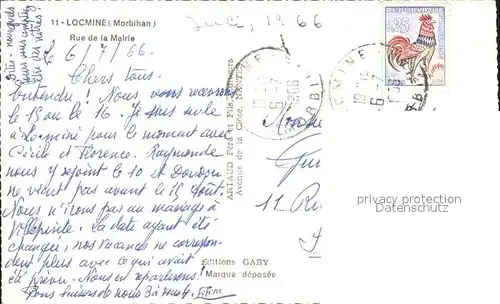 11 - LOCMINE (Morbihan)
Rue de la Mairie
Juil, 1966
Le 6/7/66.
Chers tous.
Entendu! Nous vous recevrons
le 15 ou le 16. Je suis seule
à Locminé pour le moment avec
Cécile et Florence. Raymonde
nous y rejoint le 10 et
ne vient pas avant le 15 Août.
Nous n'irons pas au mariage à
Villepinte. La date ayant été
changée, nos vacances ne correspon-
dent plus avec ce qui avait
été prévu. Nous en reparlerons!
Bons baisers de nous
ARTAUD Père et Fils, Éditeurs
Avenue de la Close, NANTES
Editions GABY
Marque déposée
0,25
6-7
1966
6-7
11 Ru
privacy protection
Datenschutz